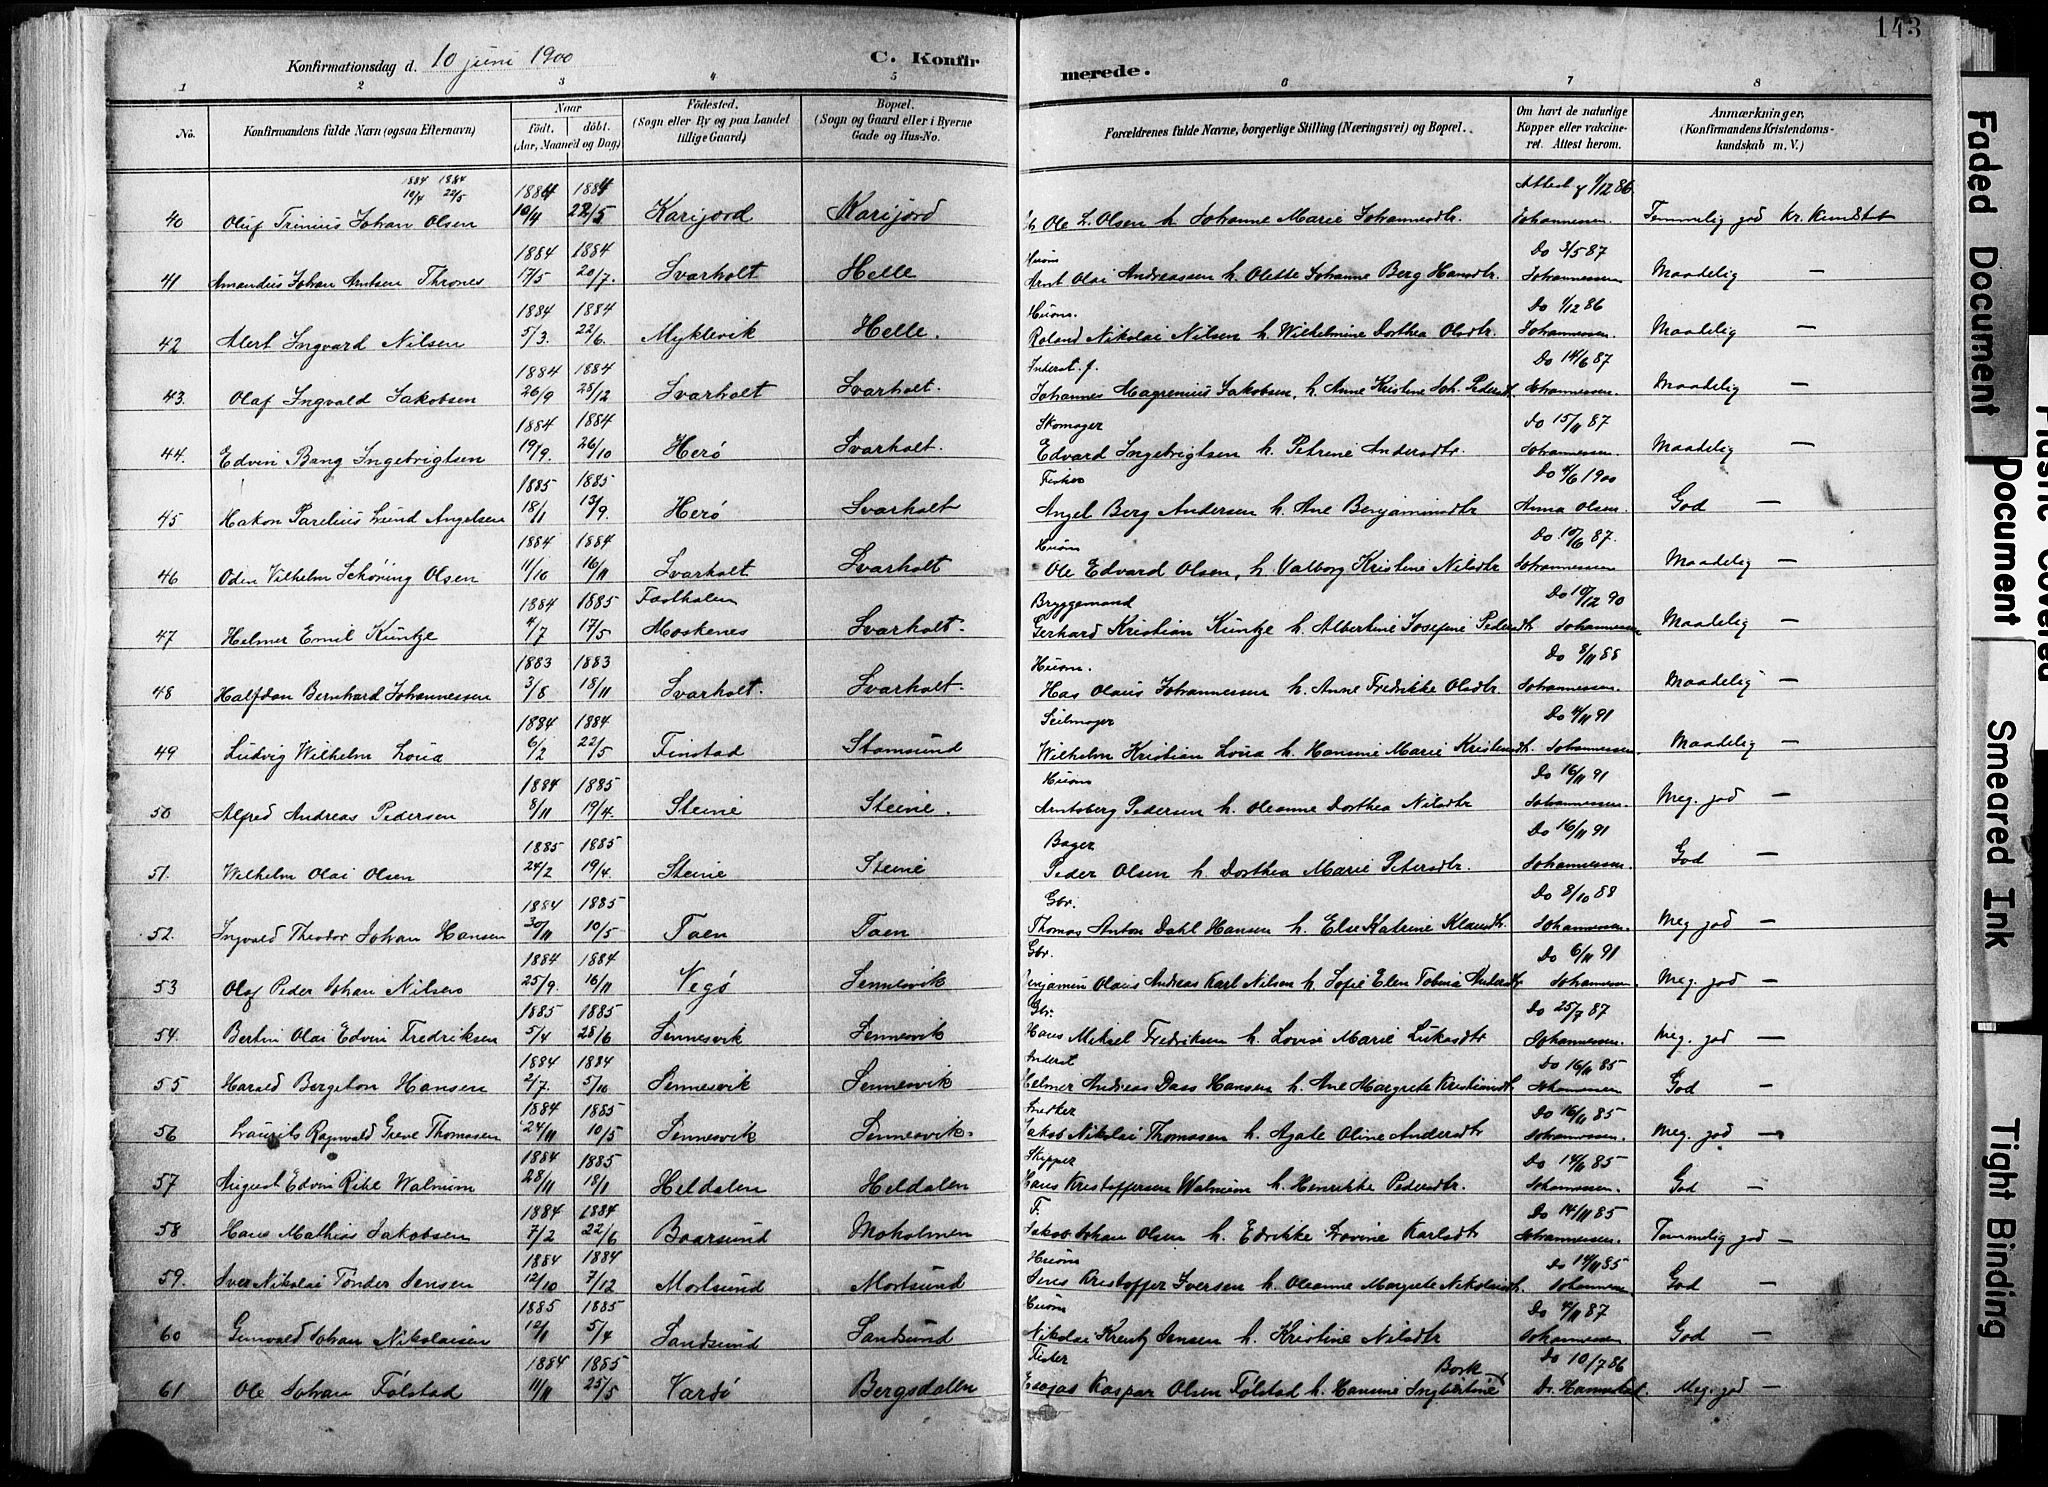 143
Konfirmationsdag d. 10 juni 1900
C. Konfirmerede.
1 2 3 4 5 6 7 8
No. Konfirmandens fulde Navn (ogsaa Efternavn) Naar født. døbt. (Aar, Maaned og Dag) Fødested. (Sogn eller By og paa Landet tillige Gaard) Bopæl. (Sogn og Gaard eller i Byerne Gade og Hus-No. Forældrenes fulde Navne, borgerlige Stilling (Næringsvei) og Bopæl. Om havt de naturlige Kopper eller vakcineret. Attest herom. Anmærkninger, (Konfirmandens Kristendomskundskab m. V.)
1884 10/4 1884 22/5
1884 1884 Attest af 1/12 86
40 Oluf Trinius Johan Olsen 10/4 22/5 Karijord Karijord Ole L. Olsen h. Johanne Marie Johannesdtr. Johannessen. Temmelig god Kr. kundskab
1884 1884 Husm Do 3/5 87
41 Amandus Johan Arntsen Thrones 17/5 20/7. Svarholt Helle Arnt Olai Andreassen h. Olette Johanne Berg Hansdtr. Johannessen Maadelig —
1884 1884 Husm. Do 1/12 86
42 Alert Ingvard Nilsen 5/3. 22/6. Myklevik Helle. Roland Nikolai Nilsen h. Wilhelmine Dorthea Olsdtr. Johannessen. Maadelig —
1884 1884 Inderst. f. Do 14/6 87
43. Olaf Ingvald Jakobsen 26/9 28/12 Svarholt Svarholt. Johannes Magrenius Jakobsen, h. Anne Kristine Joh. Pedersdtr. Johannessen. Maadelig —
1884 1884 Skomager Do 15/11 87
44. Edvin Bang Ingebrigtsen 19/9. 26/10 Herø Svarholt. Edvard Ingebrigtsen h. Petrine Andersdtr Johannessen Maadelig —
1885 1885 Fisker Do 4/6 1900
45 Hakon Parelius Lund Angelsen 18/1 13/9. Herø Svarholt Angel Berg Andersen h. Ane Benjaminsdtr Anna Olsen. God —
1884 1884 Husm Do 10/6 87.
46 Odin Vilhelm Schøning Olsen 11/10 16/11 Svarholt Svarholt Ole Edvard Olsen, h. Valborg Kristine Nilsdtr Johannessen Maadelig —
1884 1885 Bryggemand Do 10/12 90
47 Helmer Emil Kuntze 4/7 17/5 Moskenes Svarholt. Gerhard Kristian Kuntze h. Albertine Josefine Pedersdtr Johannessen Maadelig —
1883 1883 Husm. Do 8/11 88
48 Halfdan Bernhard Johannessen 3/8 18/11 Svarholt. Svarholt. Has Olaus Johannessen h. Anne Fredrikke Olsdtr. Johannessen. Maadelig —
1884 1884 Seilmager Do 4/11 91
49 Ludvig Wilhelm Loua 6/2 22/5 Finstad Stamsund Wilhelm Kristian Loua h. Hansine Marie Kristensdtr. Johannessen. Maadelig —
1884 1885 Husm Do 16/11 91
50 Alfred Andreas Pedersen 8/11 19/4. Steine Steine. Arntsberg Pedersen h. Oleanne Dorthea Nilsdtr Johannessen. Meg. god —
1885 1885 Bager Do 16/11 91
51. Wilhelm Olai Olsen 24/2 19/4. Steine Steine Peder Olsen h. Dorthea Marie Petersdtr. Johannessen. God —
1884 1885 Gbr. Do 8/10 88
52. Ingvald Theodor Johan Hansen 30/11 10/5 Taen Taen Thomas Anton Dahl Hansen h. Else Katrine Klausdtr. Johannessen. Meg god —
1884 1884 Gbr. Do 6/11 91
53 Olaf Peder Johan Nilsen 25/9. 16/11 Vegø Sennesvik Benjamin Olaus Andreas Karl Nilsen h. Sofie Elen Tobine Andersdtr Johannessen. Meg. god —
1885 1885 Gbr. Do 25/7 87
54. Bertin Olai Edvin Fredriksen 5/4 28/6 Sennesvik Sennesvik Hans Mikael Fredriksen h. Lovise Marie Lukasdtr Johannessen Meg. god —
1884 1884 Inderst Do 16/11 85
55 Harald Bergeton Hansen 2/7. 5/10 Sennesvik Sennesvik Helmer Andreas Dass Hansen h. Ane Margrete Kristiansdtr Johannessen God —
1884 1885 Snedker Do 16/11 85
56 Laurits Ragnvald Greve Thomassen 24/11 10/5 Sennesvik Sennesvik. Jakob Nikolai Thomassen h. Agate Oline Andersdtr Johannessen. Meg. god —
1884 1885 Skipper Do 14/6 85
57 August Edvin Rihl Walnum 28/11 18/1 Heldalen Heldalen Hans Kristoffersen Walnum h. Henrikke Pedersdtr. Johannessen. God —
1884 1884 F. Do 14/11 85
58 Hans Mathias Jakobsen 7/2 22/6 Baarsund Moholmen Jakob Johan Olsen h. Edrikke Lovine Karlsdtr Johannessen. Temmelig god —
1884 1884 Husm Do 14/11 85
59. Iver Nikolai Tønder Jensen 12/10 7/12 Mortsund Mortsund Jens Kristoffer Iversen h. Oleanne Margrete Nikolaisdtr. Johannessen God —
1885 1885 Husm Do 4/11 87
60 Gunvald Johan Nikolaisen 12/1 5/4 Sandsund Sandsund Nikolai Krentz Jensen h. Kristine Nilsdtr Johannessen God —
1884 1885 Fisker Bork Do 10/7 86
61 Ole Johan Følstad 11/11 25/5 Vardø Bergsdalen Esajas Kaspar Olsen Følstad h. Hansine Ingbertine Dr. Meg. god —
Faded Document
Document
Smeared Ink
Tight Binding